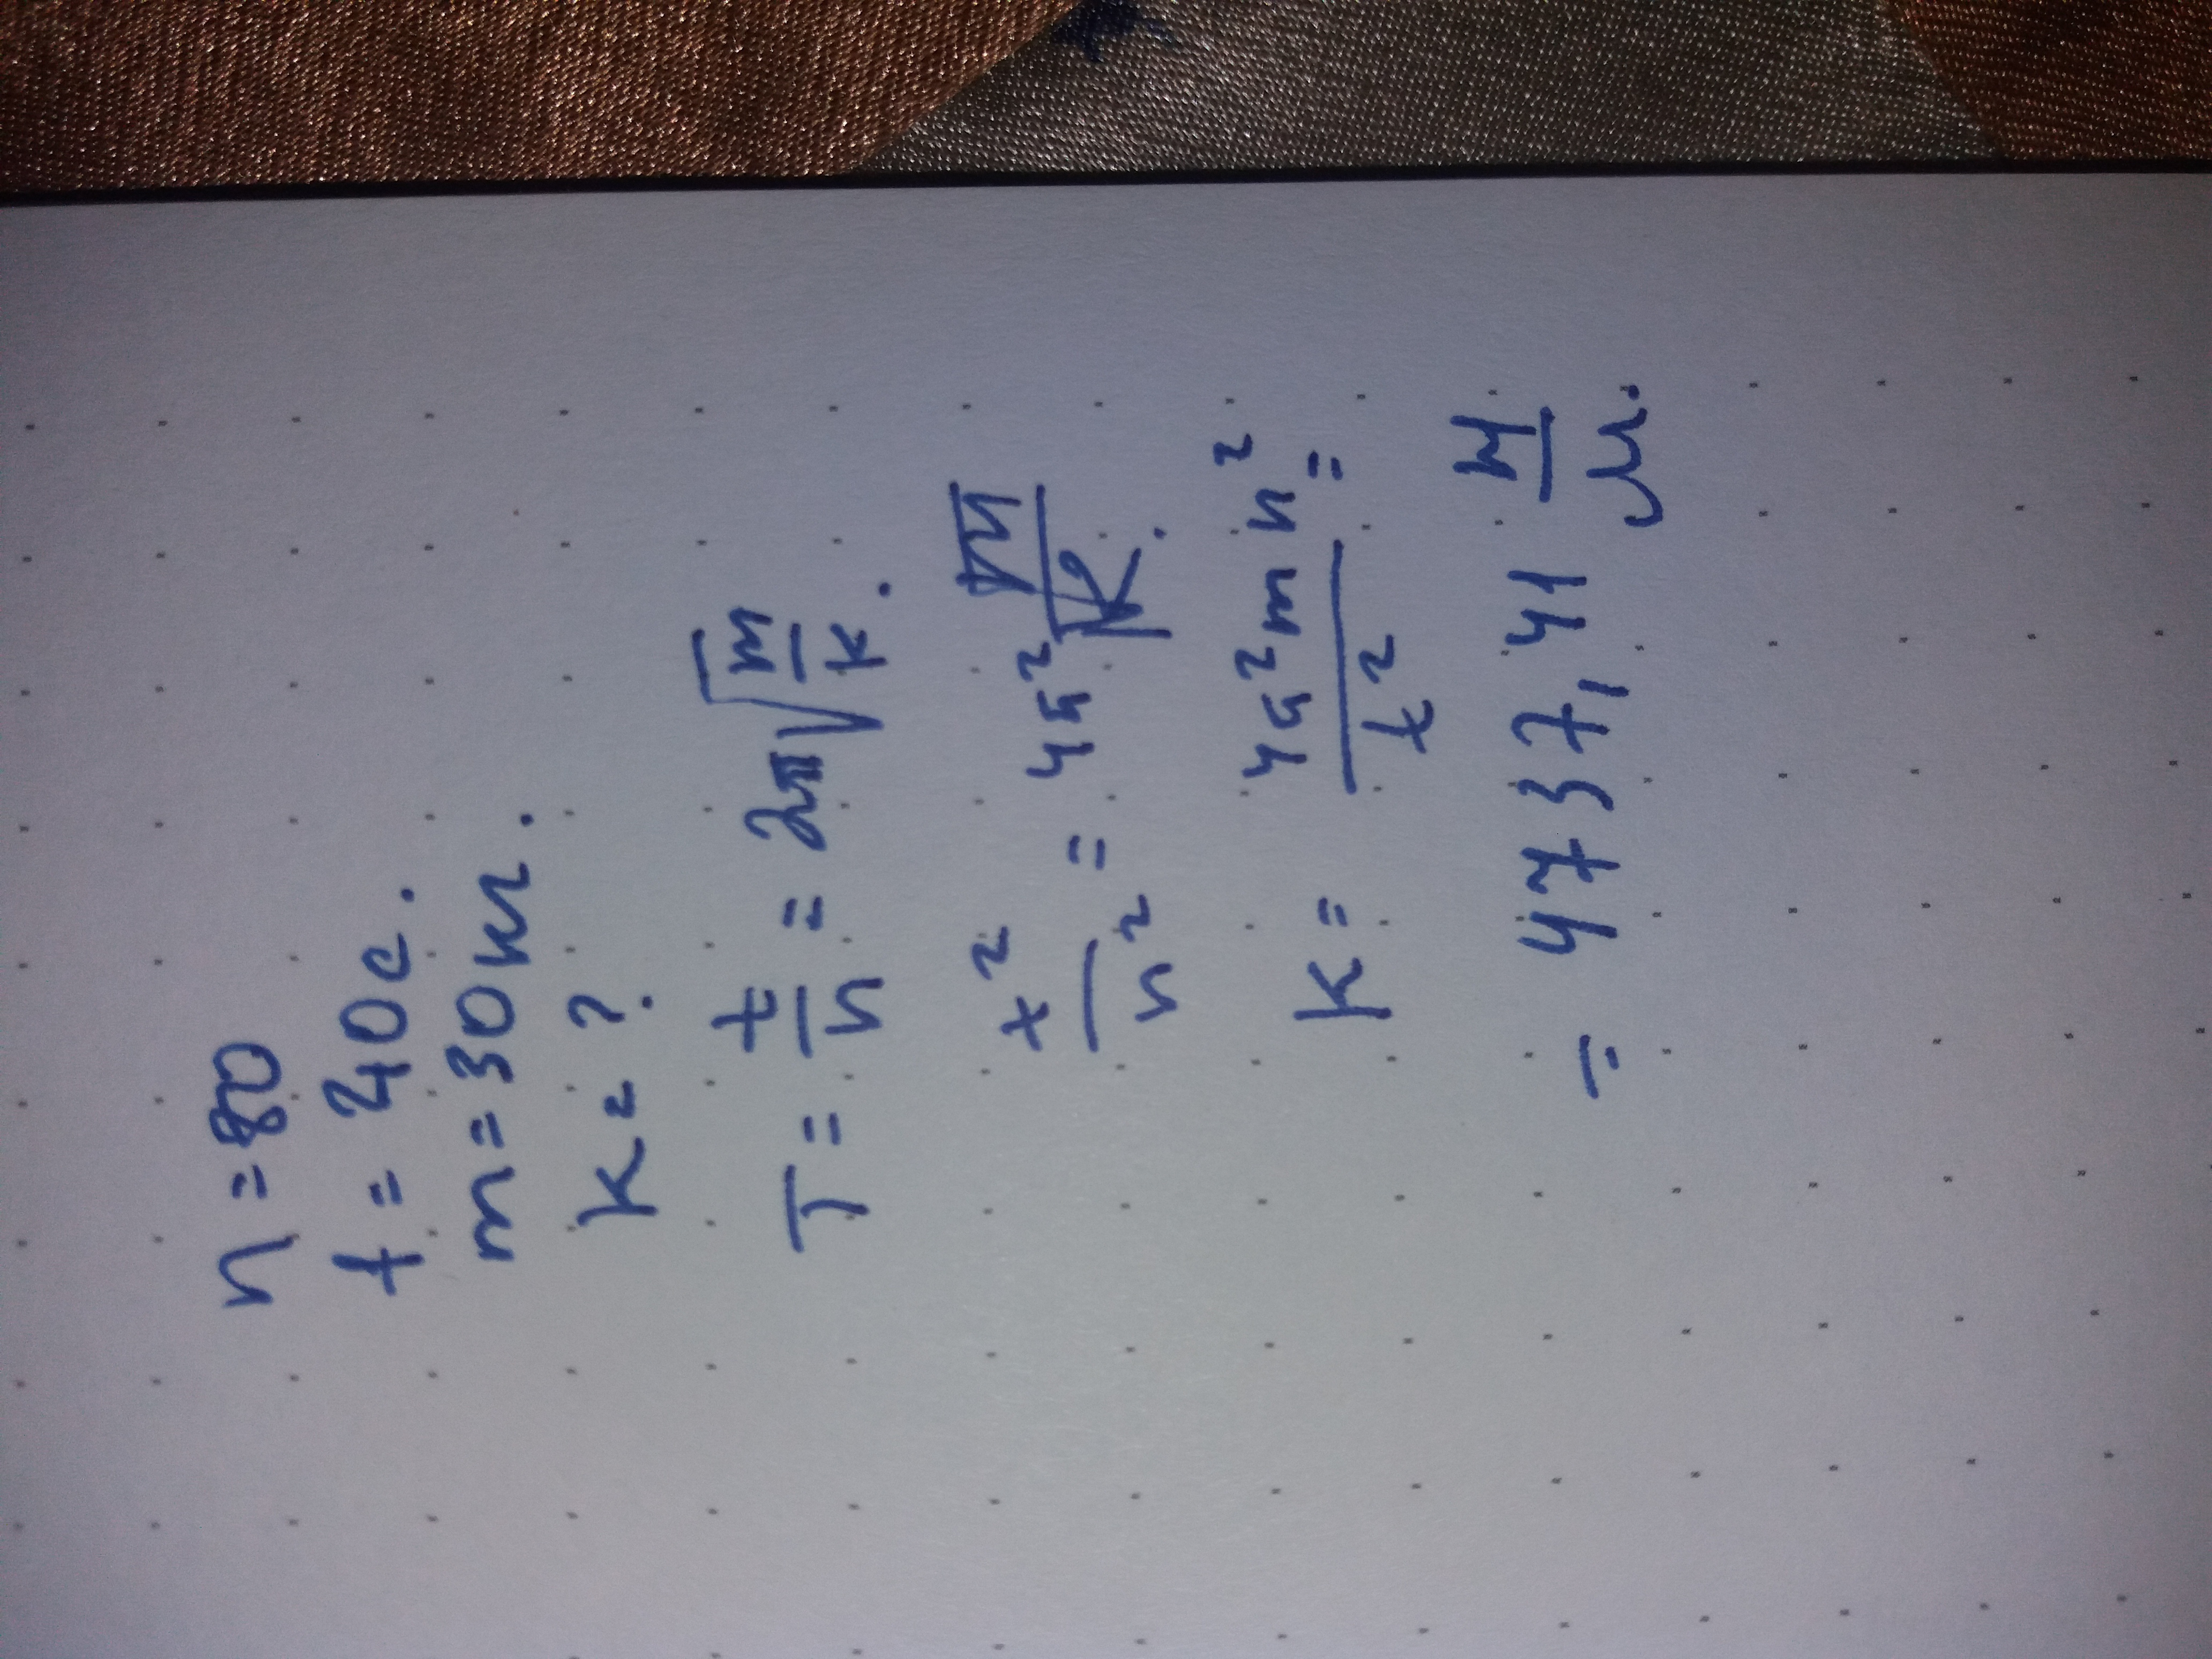 n = 80
t = 40 с.
m = 30 кг.
K = ?
T = t/n = 2π√(m/k).
t²/n² = 4π² m/K.
K = 4π²mn²/t² =
= 4737,41 Н/м.